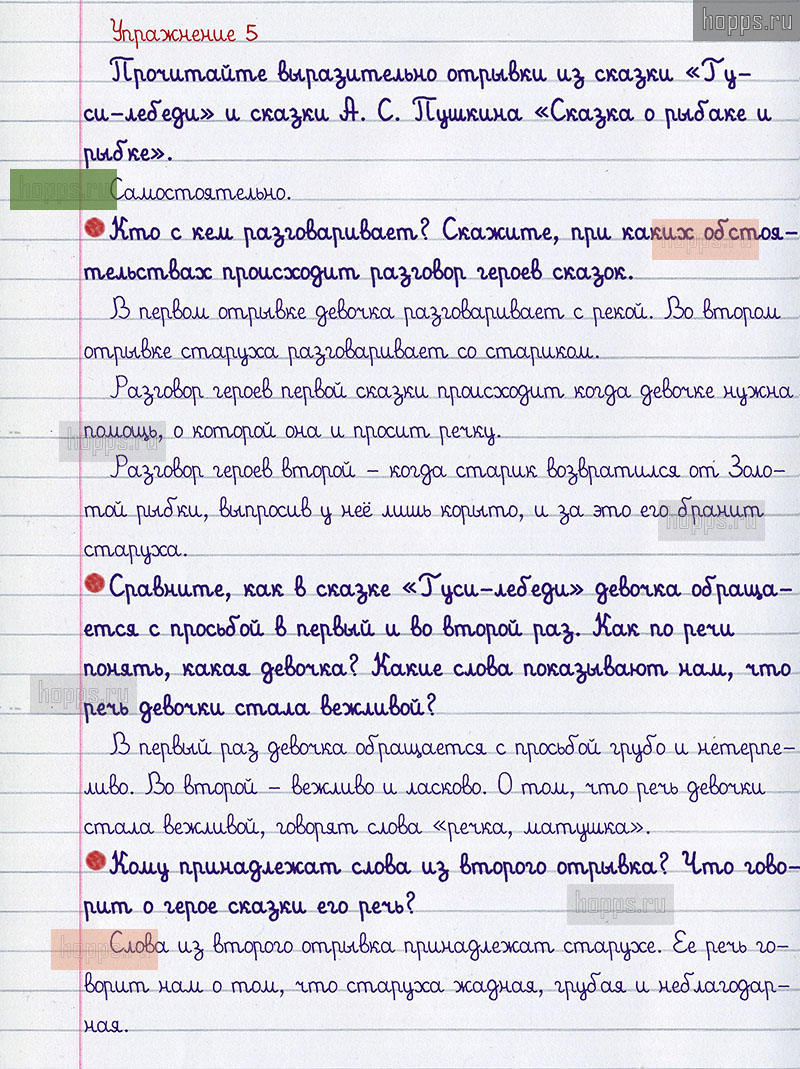 hopps.ru
Упражнение 5
Прочитайте выразительно отрывки из сказки «Гу-
си-лебеди» и сказки А. С. Пушкина «Сказка о рыбаке и
рыбке».
hopps.ru
Самостоятельно.
Кто с кем разговаривает? Скажите, при каких обстоя-
hopps.ru
тельствах происходит разговор героев сказок.
В первом отрывке девочка разговаривает с рекой. Во втором
отрывке старуха разговаривает со стариком.
Разговор героев первой сказки происходит когда девочке нужна
помощь, о которой она и просит речку.
hopps.ru
Разговор героев второй – когда старик возвратился от Золо-
той рыбки, выпросив у неё лишь корыто, и за это его бранит
hopps.ru
старуха.
Сравните, как в сказке «Гуси-лебеди» девочка обраща-
ется с просьбой в первый и во второй раз. Как по речи
понять, какая девочка? Какие слова показывают нам, что
hopps.ru
речь девочки стала вежливой?
В первый раз девочка обращается с просьбой грубо и нетерпе-
ливо. Во второй – вежливо и ласково. О том, что речь девочки
стала вежливой, говорят слова «речка, матушка».
Кому принадлежат слова из второго отрывка? Что гово-
рит о герое сказки его речь?
hopps.ru
Слова из второго отрывка принадлежат старухе. Ее речь го-
hopps.ru
ворит нам о том, что старуха жадная, грубая и неблагодар-
ная.